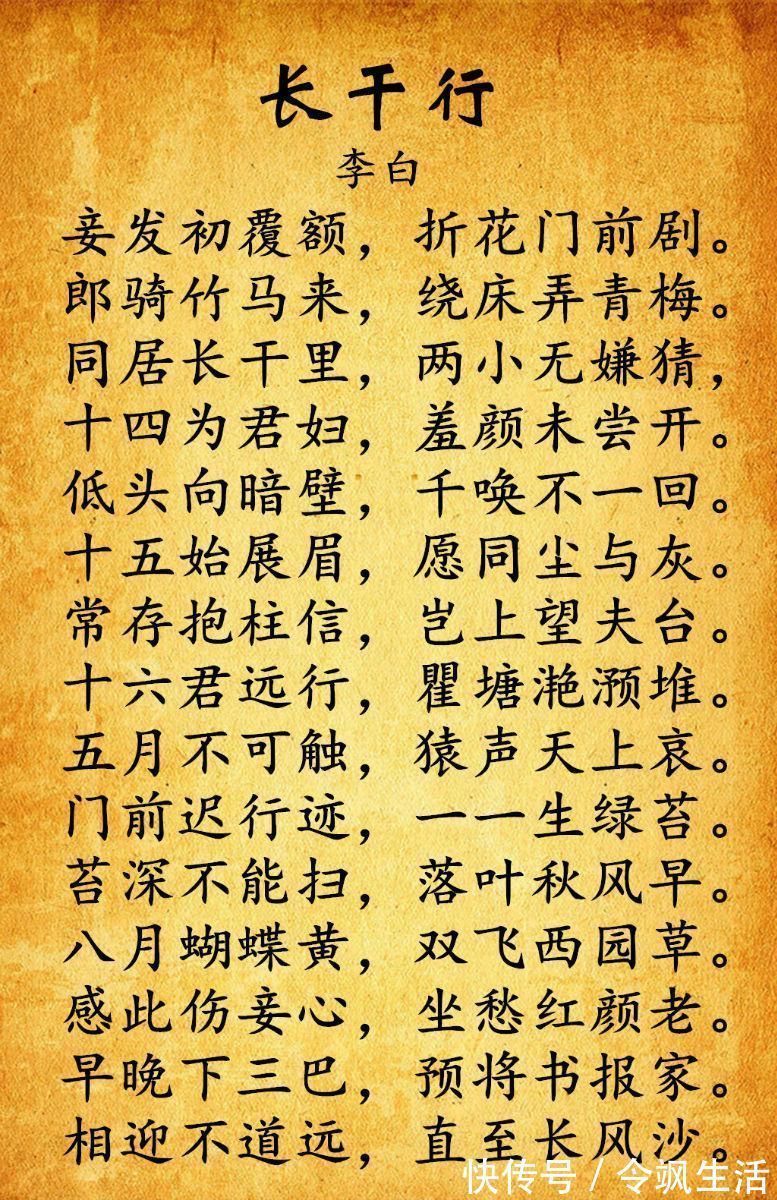 长干行
李白
妾发初覆额，折花门前剧。
郎骑竹马来，绕床弄青梅。
同居长干里，两小无嫌猜，
十四为君妇，羞颜未尝开。
低头向暗壁，千唤不一回。
十五始展眉，愿同尘与灰。
常存抱柱信，岂上望夫台。
十六君远行，瞿塘滟滪堆。
五月不可触，猿声天上哀。
门前迟行迹，一一生绿苔。
苔深不能扫，落叶秋风早。
八月蝴蝶黄，双飞西园草。
感此伤妾心，坐愁红颜老。
早晚下三巴，预将书报家。
相迎不道远，直至长风沙。
快传号 / 令飒生活